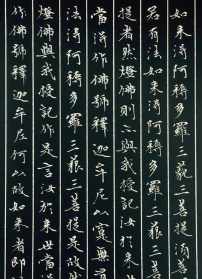 如来得阿耨多羅三藐三菩提須菩
若有法如来得阿耨多羅三藐三菩
提者然燈佛則不與我授記汝於来
當得作佛號釋迦牟尼以實無有
法得阿耨多羅三藐三菩提是故然
燈佛與我授記作是言汝於来世當得
作佛號釋迦牟尼何以故如来者即